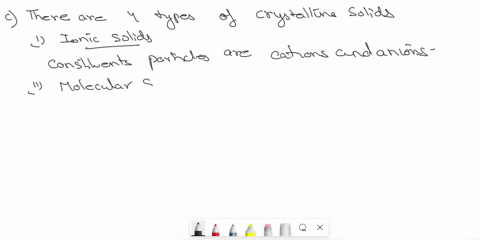 c) There are 4 types of crystalline solids
i) Ionic solids
Constituents particles are cations and anions-
ii) Molecular S